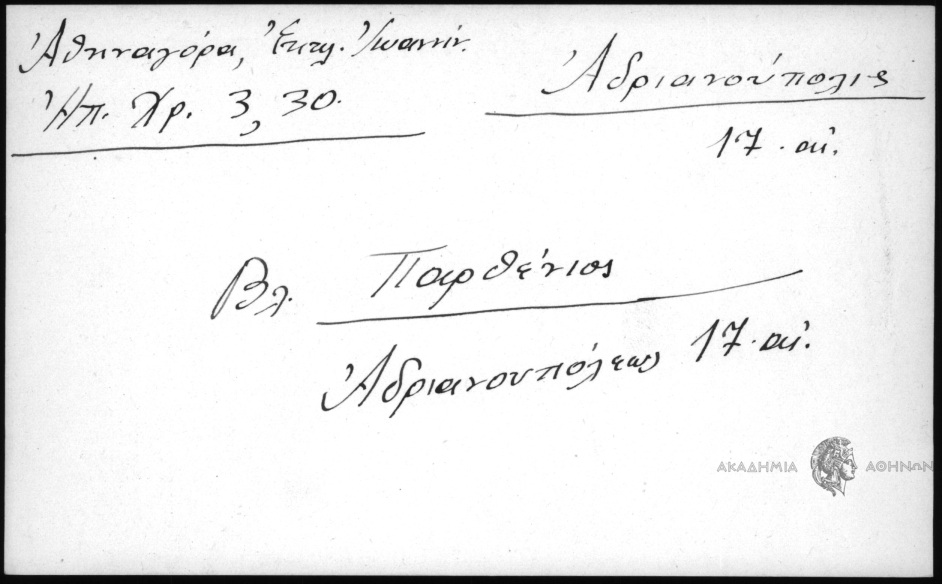 Ἀθηναγόρα, Ἐκκλ. Ἰωαννίν.
Ἠπ. Χρ. 3, 30.
Ἀδριανούπολις
17. αἰ.
Βλ. Παρθένιος
Ἀδριανουπόλεως 17. αἰ.
ΑΚΑΔΗΜΙΑ ΑΘΗΝΩΝ